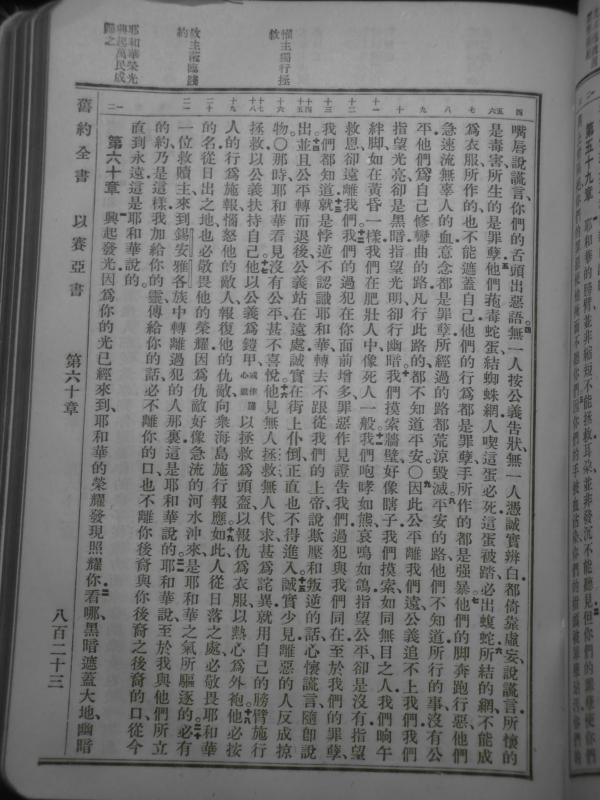 嘴唇說謊言、你們的舌頭出惡語、四無一人按公義告狀、無一人憑誠實辨白、都倚靠虛妄說謊言、所懷的
是毒害、所生的是罪孽、五他們菢毒蛇蛋、結蜘蛛網、人喫這蛋必死、這蛋被踏、必出蝮蛇、六所結的網、不能成
為衣服、所作的也不能遮蓋自己、他們的行為、都是罪孽、手所作的都是强暴、七他們的脚奔跑行惡、他們
急速流無辜人的血、意念都是罪孽、所經過的路都荒涼毀滅、八平安的路、他們不知道、所行的事、沒有公
平、他們為自己修彎曲的路、凡行此路的、都不知道平安、〇九因此公平離我們遠、公義追不上我們、我們
指望光亮、卻是黑暗、指望光明、卻行幽暗、十我們摸索牆壁、好像瞎子、我們摸索、如同無目之人、我們晌午
絆脚、如在黃昏一樣、我們在肥壯人中、像死人一般、十一我們咆哮如熊、哀鳴如鴿、指望公平、卻是沒有、指望
救恩、卻遠離我們、十二我們的過犯在你面前增多、罪惡作見證告我們、過犯與我們同在、至於我們的罪孽、
我們都知道、十三就是悖逆不認識耶和華、轉去不跟從我們的上帝、說欺壓和叛逆的話、心懷謊言、隨卽說
出、十四並且公平轉而退後、公義站在遠處、誠實在街上仆倒、正直也不得進入、十五誠實少見、離惡的人、反成掠
物、〇那時耶和華看見沒有公平、甚不喜悅、十六他見無人拯救、無人代求、甚為詫異、就用自己的膀臂、施行
拯救、以公義扶持自己、十七他以公義為鎧甲、以拯救為頭盔、以報仇為衣服、以熱心為外袍、十八他必按
人的行為施報、惱怒他的敵人、報復他的仇敵、向衆海島施行報應、十九如此、人從日落之處、必敬畏耶和華
的名、從日出之地、也必敬畏他的榮耀、因為仇敵好像急流的河水沖來、是耶和華之氣所驅逐的、二十必有
一位救贖主、來到錫安雅各族中、轉離過犯的人那裏、這是耶和華說的、二一耶和華說、至於我與他們所立
的約乃是這樣、我加給你的靈、傳給你的話、必不離你的口、也不離你後裔與你後裔之後裔的口、從今
直到永遠、這是耶和華說的、
第六十章 一興起發光、因為你的光已經來到、耶和華的榮耀發現照耀你、二看哪、黑暗遮蓋大地、幽暗
舊約全書 以賽亞書 第六十章 八百二十三
惟主獨行拯
救
救主蒞臨踐
約
耶和華榮光
興起萬民成
歸之
第五十九章